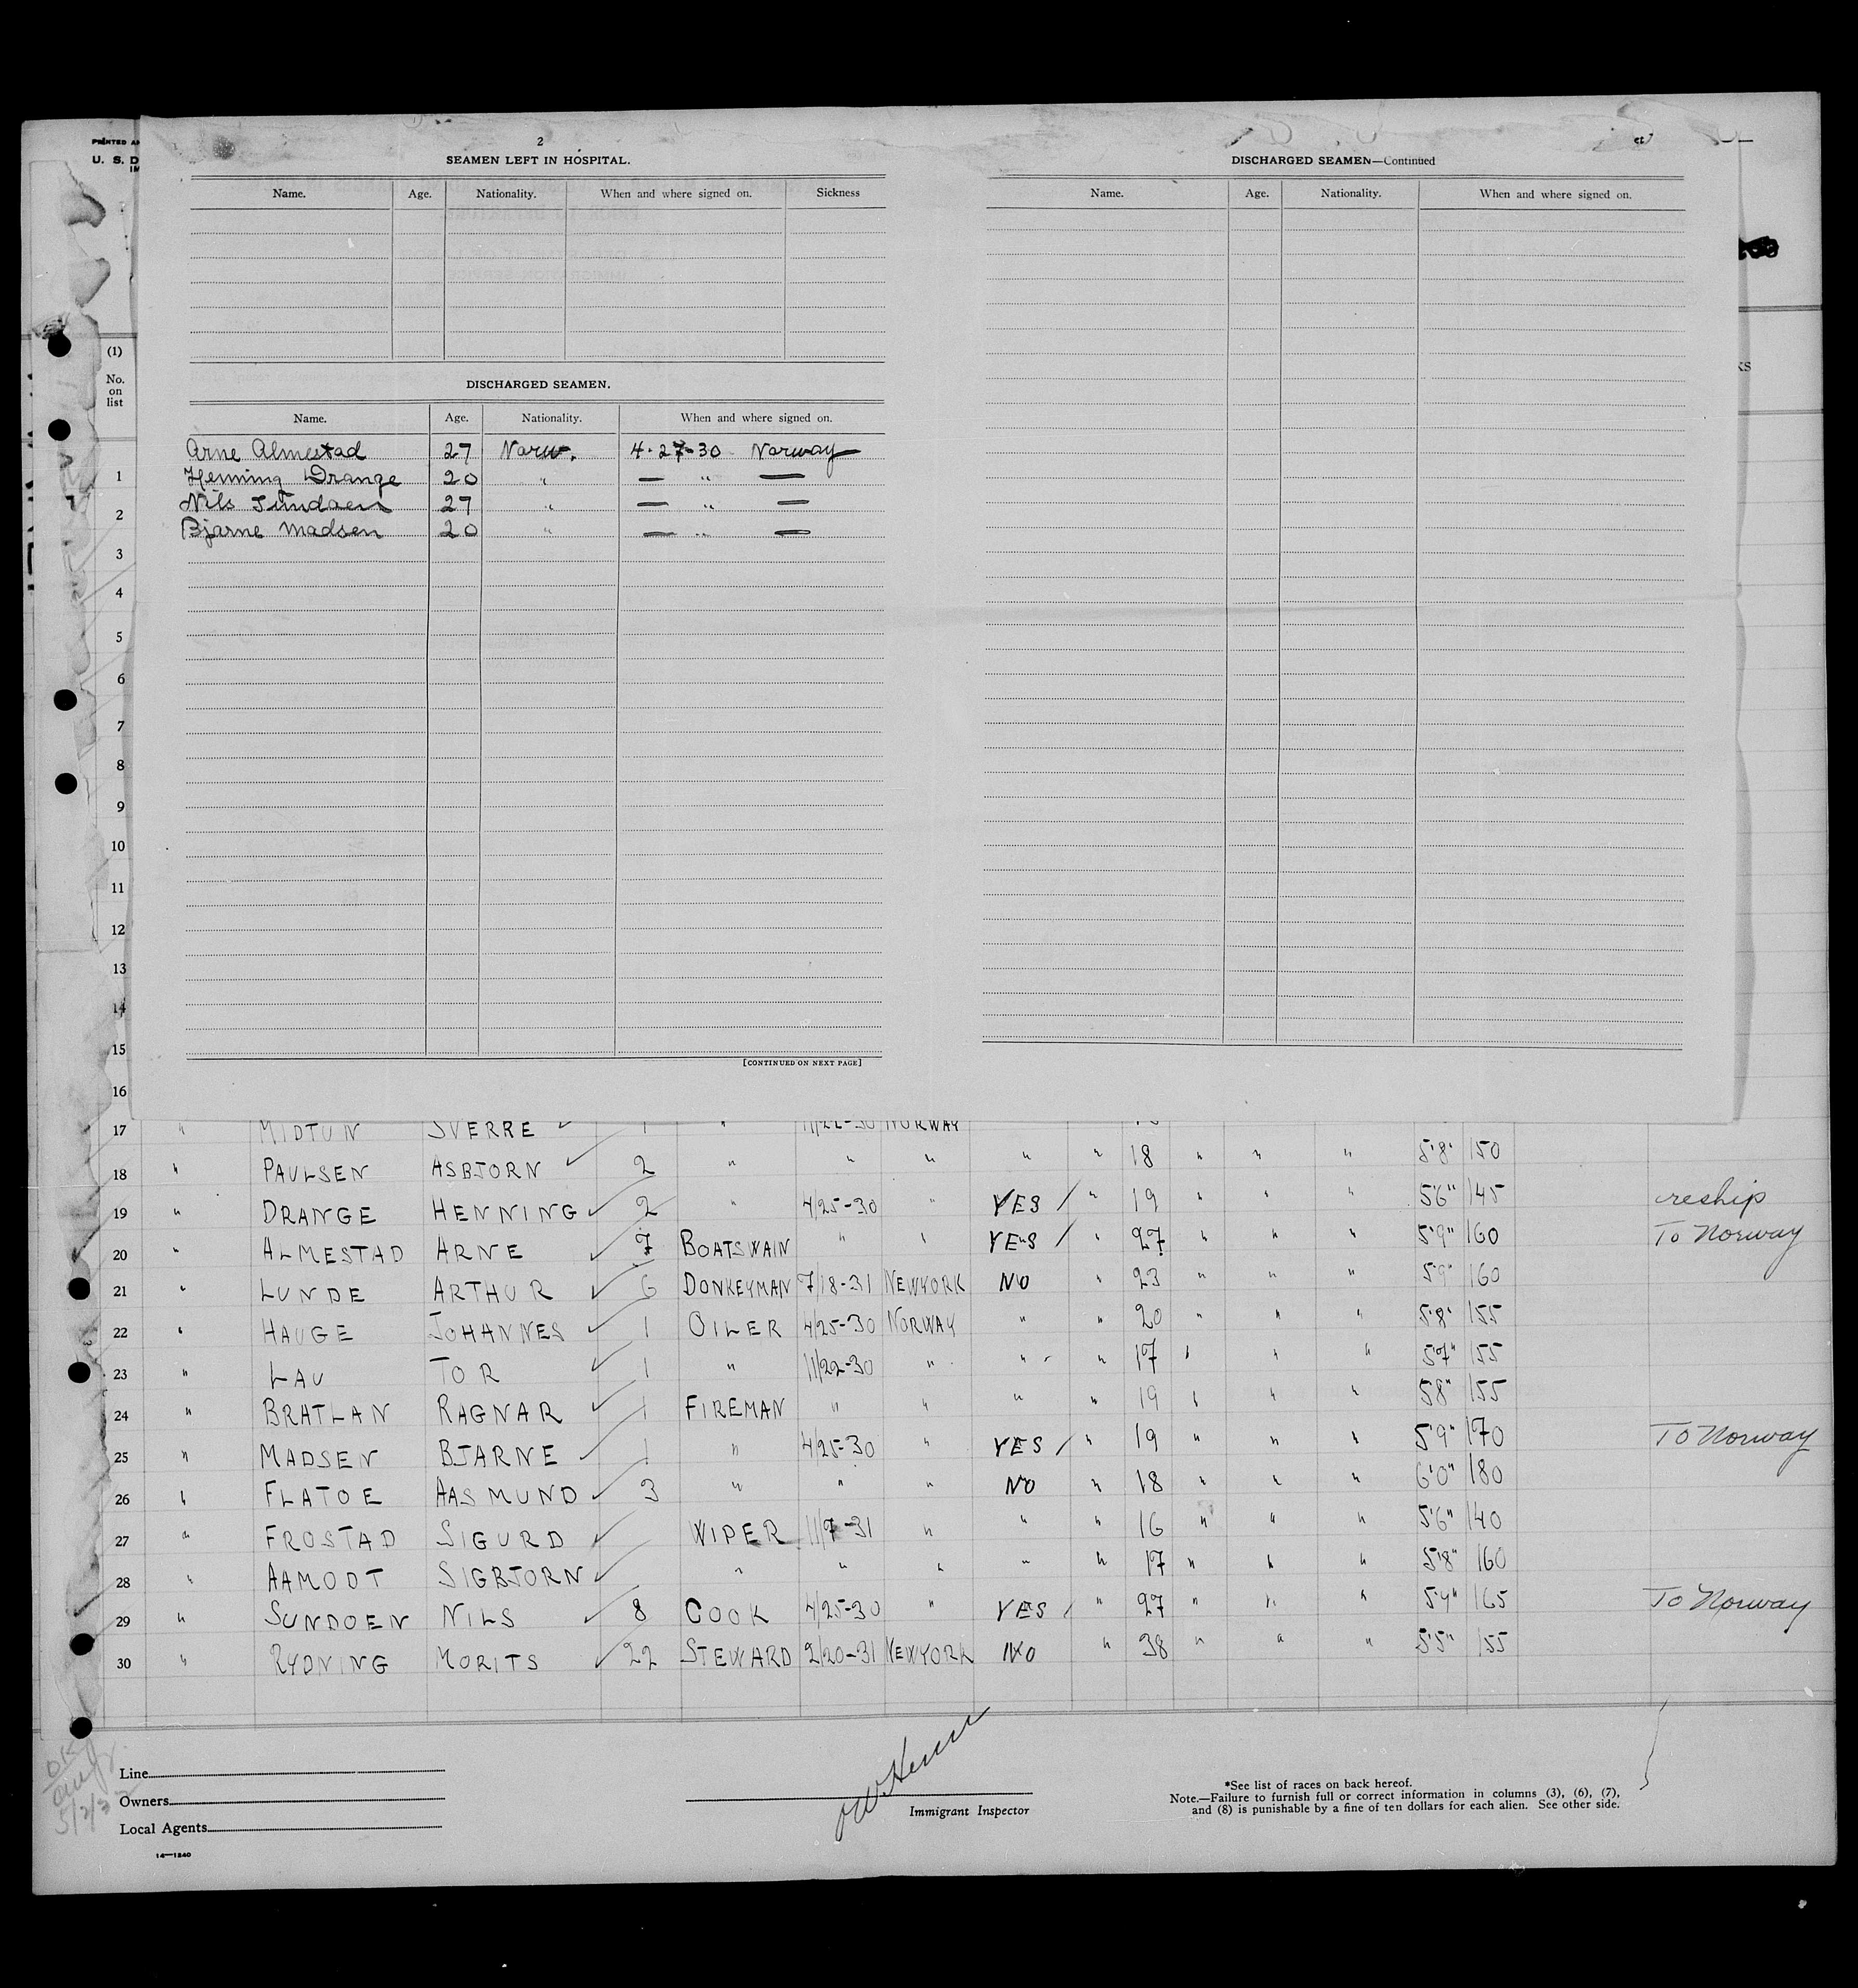 PRINTED
U. S. D
2
SEAMEN LEFT IN HOSPITAL.
Name. Age. Nationality. When and where signed on. Sickness
DISCHARGED SEAMEN.
Name. Age. Nationality. When and where signed on.
Arne Almestad 27 Norw. 4-27-30 Norway
Henning Drange 20 " — " —
Nils Sundoen 27 " — " —
Bjarne Madsen 20 " — " —
[CONTINUED ON NEXT PAGE]
DISCHARGED SEAMEN—Continued
Name. Age. Nationality. When and where signed on.
(1)
No.
on
list
1
2
3
4
5
6
7
8
9
10
11
12
13
14
15
16
17 " MIDTUN SVERRE 1 " 11/22-30 NORWAY
18 " PAULSEN ASBJORN 2 " " " " " 18 " " " 5'8" 150
19 " DRANGE HENNING 2 " 4/25-30 " YES " 19 " " " 5'6" 145 reship
20 " ALMESTAD ARNE 7 BOATSWAIN " " YES " 27 " " " 5'9" 160 To Norway
21 " LUNDE ARTHUR 6 DONKEYMAN 7/18-31 NEWYORK NO " 23 " " " 5'9" 160
22 " HAUGE JOHANNES 1 OILER 4/25-30 NORWAY " " 20 " " " 5'8" 155
23 " LAU TOR 1 " 11/22-30 " " " 17 " " " 5'7" 155
24 " BRATLAN RAGNAR 1 FIREMAN " " " " 19 " " " 5'8" 155
25 " MADSEN BJARNE 1 " 4/25-30 " YES " 19 " " " 5'9" 170 To Norway
26 " FLATOE AASMUND 3 " " " NO " 18 " " " 6'0" 180
27 " FROSTAD SIGURD WIPER 11/7-31 " " " 16 " " " 5'6" 140
28 " AAMODT SIGBJORN " " " " " 17 " " " 5'8" 160
29 " SUNDOEN NILS 8 COOK 4/25-30 " YES " 27 " " " 5'4" 165 To Norway
30 " RYDNING MORITS 22 STEWARD 2/20-31 NEWYORK NO " 38 " " " 5'5" 155
Line
Owners
Local Agents
14—1240
Immigrant Inspector
*See list of races on back hereof.
Note.—Failure to furnish full or correct information in columns (3), (6), (7),
and (8) is punishable by a fine of ten dollars for each alien. See other side.